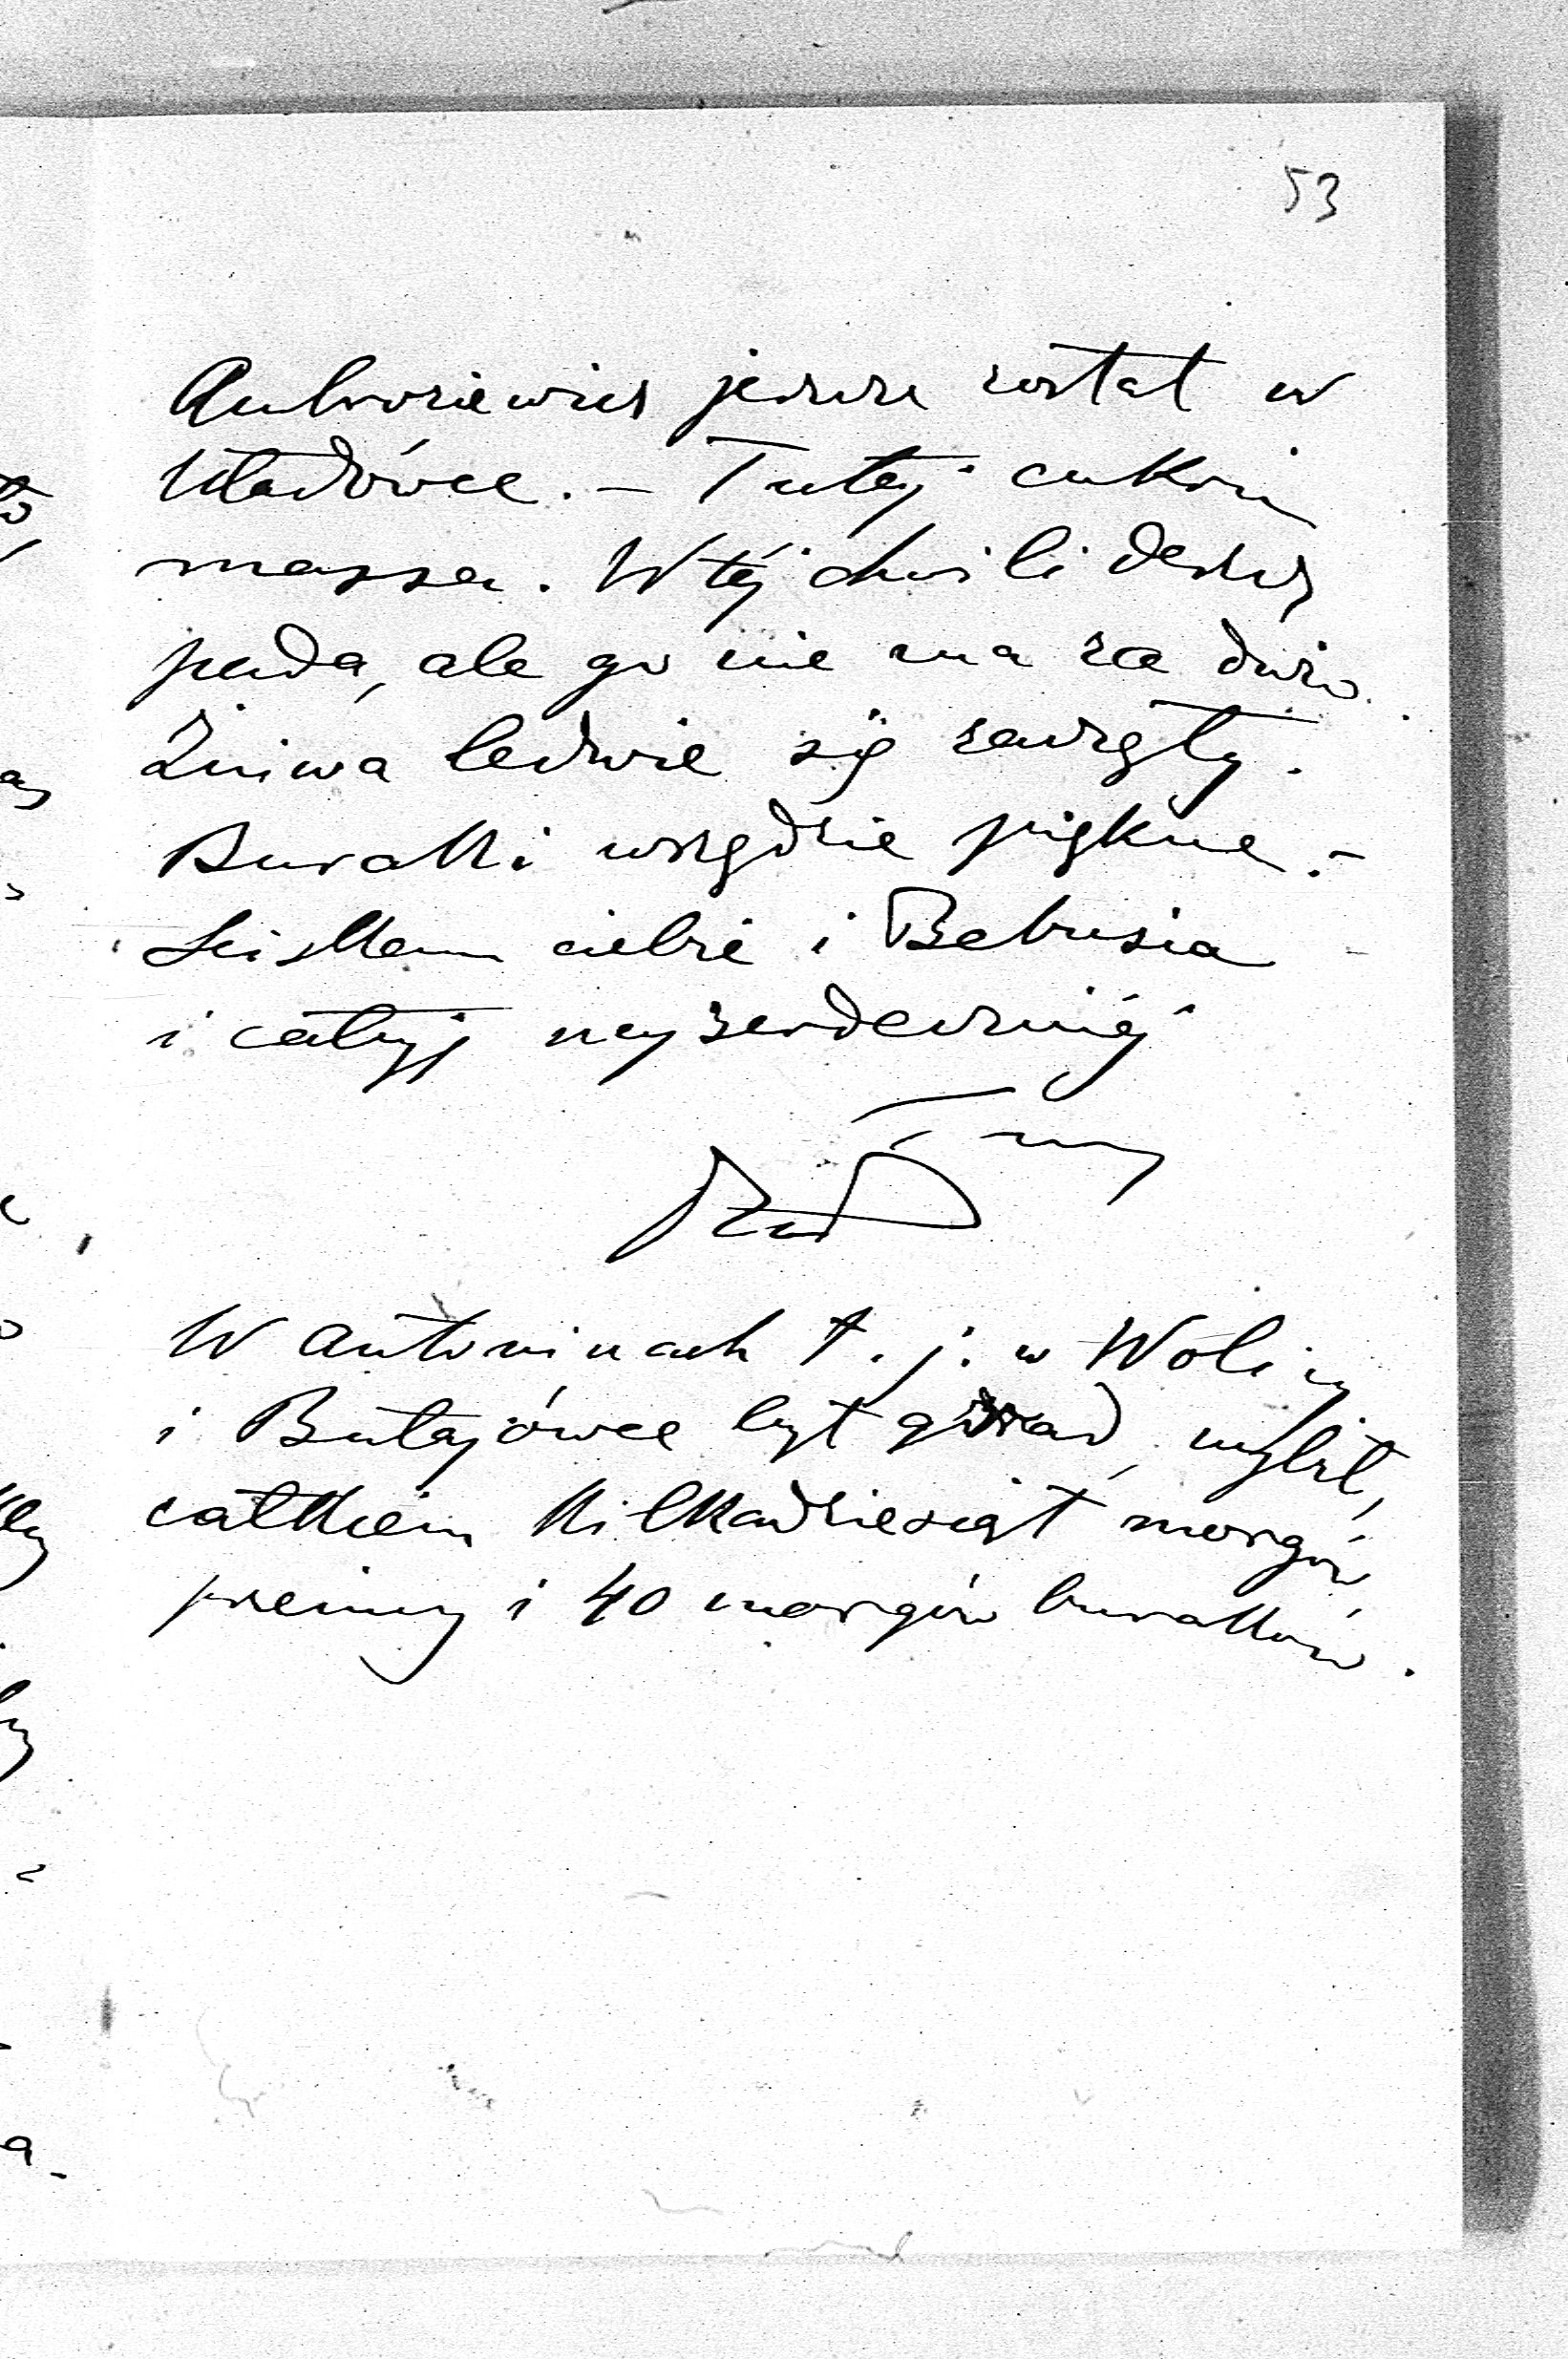 53
Ambroziewicz jeszcze został w
Uładówce. – Tutaj cukru
massa. W téj chwili deszcz
pada, ale go nie ma za dużo.
Żniwa ledwie się zaczęły.
Buraki wszędzie piękne. –
Ściskam ciebie i Bebusia
i całuję najserdeczniéj
W Antoninach t. j. w Wolicy
i Butajówce był grad, wybił,
całkiem kilkadziesiąt morgów
pszenicy i 40 morgów buraków.